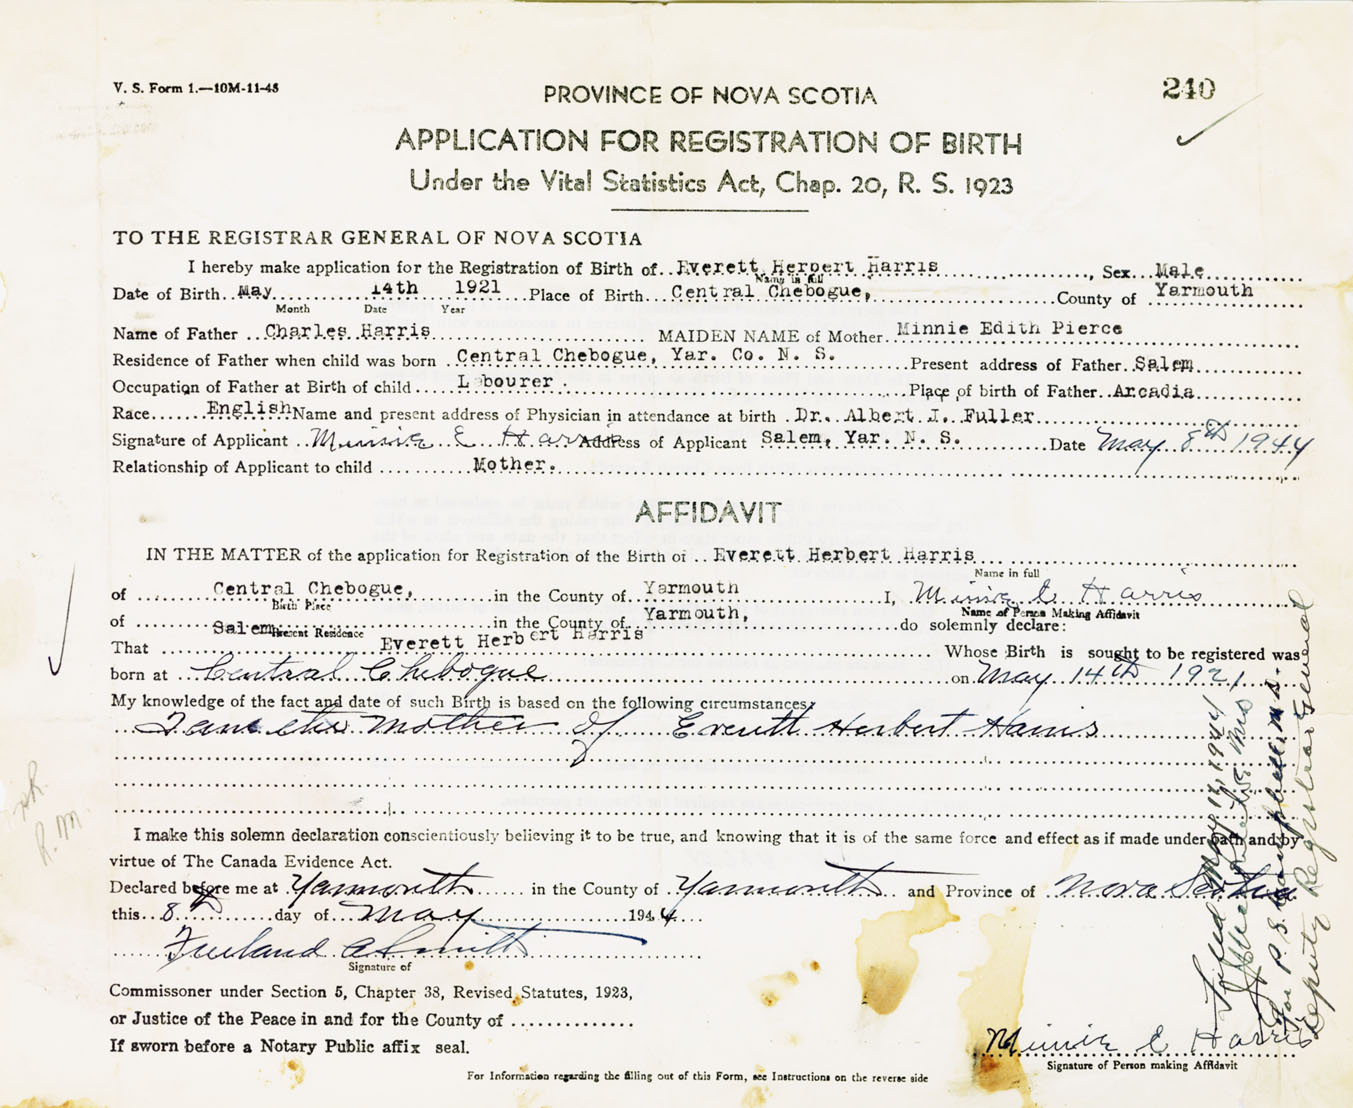 V. S. Form 1.—10M-11-43
240
PROVINCE OF NOVA SCOTIA
APPLICATION FOR REGISTRATION OF BIRTH
Under the Vital Statistics Act, Chap. 20, R. S. 1923
TO THE REGISTRAR GENERAL OF NOVA SCOTIA
I hereby make application for the Registration of Birth of Everett Herbert Harris, Sex Male
Name in full
Date of Birth May 14th 1921 Place of Birth Central Chebogue, County of Yarmouth
Month Date Year
Name of Father Charles Harris MAIDEN NAME of Mother Minnie Edith Pierce
Residence of Father when child was born Central Chebogue, Yar. Co. N. S. Present address of Father Salem
Occupation of Father at Birth of child Labourer. Place of birth of Father Arcadia
Race English Name and present address of Physician in attendance at birth Dr. Albert I. Fuller
Signature of Applicant Minnie E Harris Address of Applicant Salem, Yar. N. S. Date May 8th 1944
Relationship of Applicant to child Mother.
AFFIDAVIT
IN THE MATTER of the application for Registration of the Birth of Everett Herbert Harris
Name in full
of Central Chebogue, in the County of Yarmouth I, Minnie E Harris
Birth Place Name of Person Making Affidavit
of Salem in the County of Yarmouth, do solemnly declare:
Present Residence
That Everett Herbert Harris Whose Birth is sought to be registered was
born at Central Chebogue on May 14th 1921
My knowledge of the fact and date of such Birth is based on the following circumstances:
I am the Mother of Everett Herbert Harris
I make this solemn declaration conscientiously believing it to be true, and knowing that it is of the same force and effect as if made under oath and by
virtue of The Canada Evidence Act.
Declared before me at Yarmouth in the County of Yarmouth and Province of Nova Scotia
this 8th day of May 1944
Signature of
Commissoner under Section 5, Chapter 38, Revised Statutes, 1923,
or Justice of the Peace in and for the County of
If sworn before a Notary Public affix seal.
Minnie E Harris
Signature of Person making Affidavit
For Information regarding the filling out of this Form, see Instructions on the reverse side
Filed May 1944
For P. S. Campbell, M.D.
Deputy Registrar General
R. M.